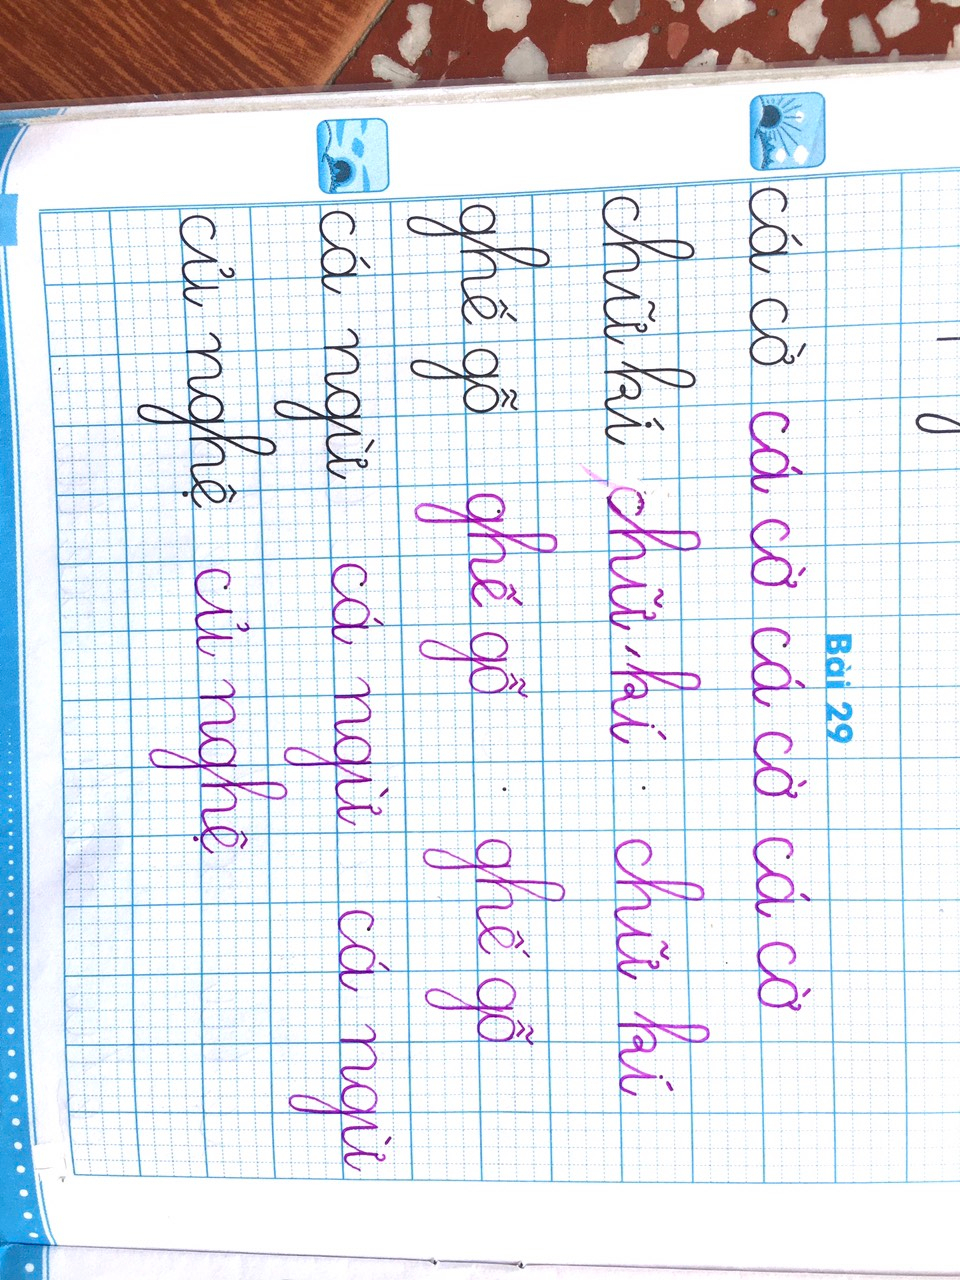 Bài 29
cá cờ cá cờ cá cờ cá cờ
chữ kí chữ kí chữ kí
ghế gỗ ghế gỗ ghế gỗ
cá ngừ cá ngừ cá ngừ
củ nghệ củ nghệ